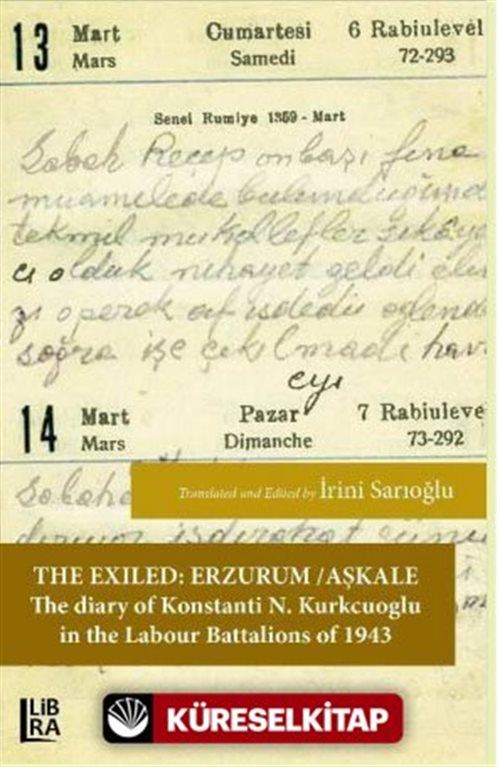 13 Mart Cumartesi 6 Rabiulevel
Mars Samedi 72-293
Senei Rumiye 1359 - Mart
Sabah Recep onbaşı fena
muamelede bulunduğunda
tekmil mukellefler şikâye
cı olduk nihayet geldi eli
zi operek af isdedi oglend
soğra işe çıkılmadı hav
eyi
14 Mart Pazar 7 Rabiuleve
Mars Dimanche 73-292
Sabah
Translated and Edited by İrini Sarıoğlu
THE EXILED: ERZURUM /AŞKALE
The diary of Konstanti N. Kurkcuoglu
in the Labour Battalions of 1943
LiBRA
KÜRESELKİTAP